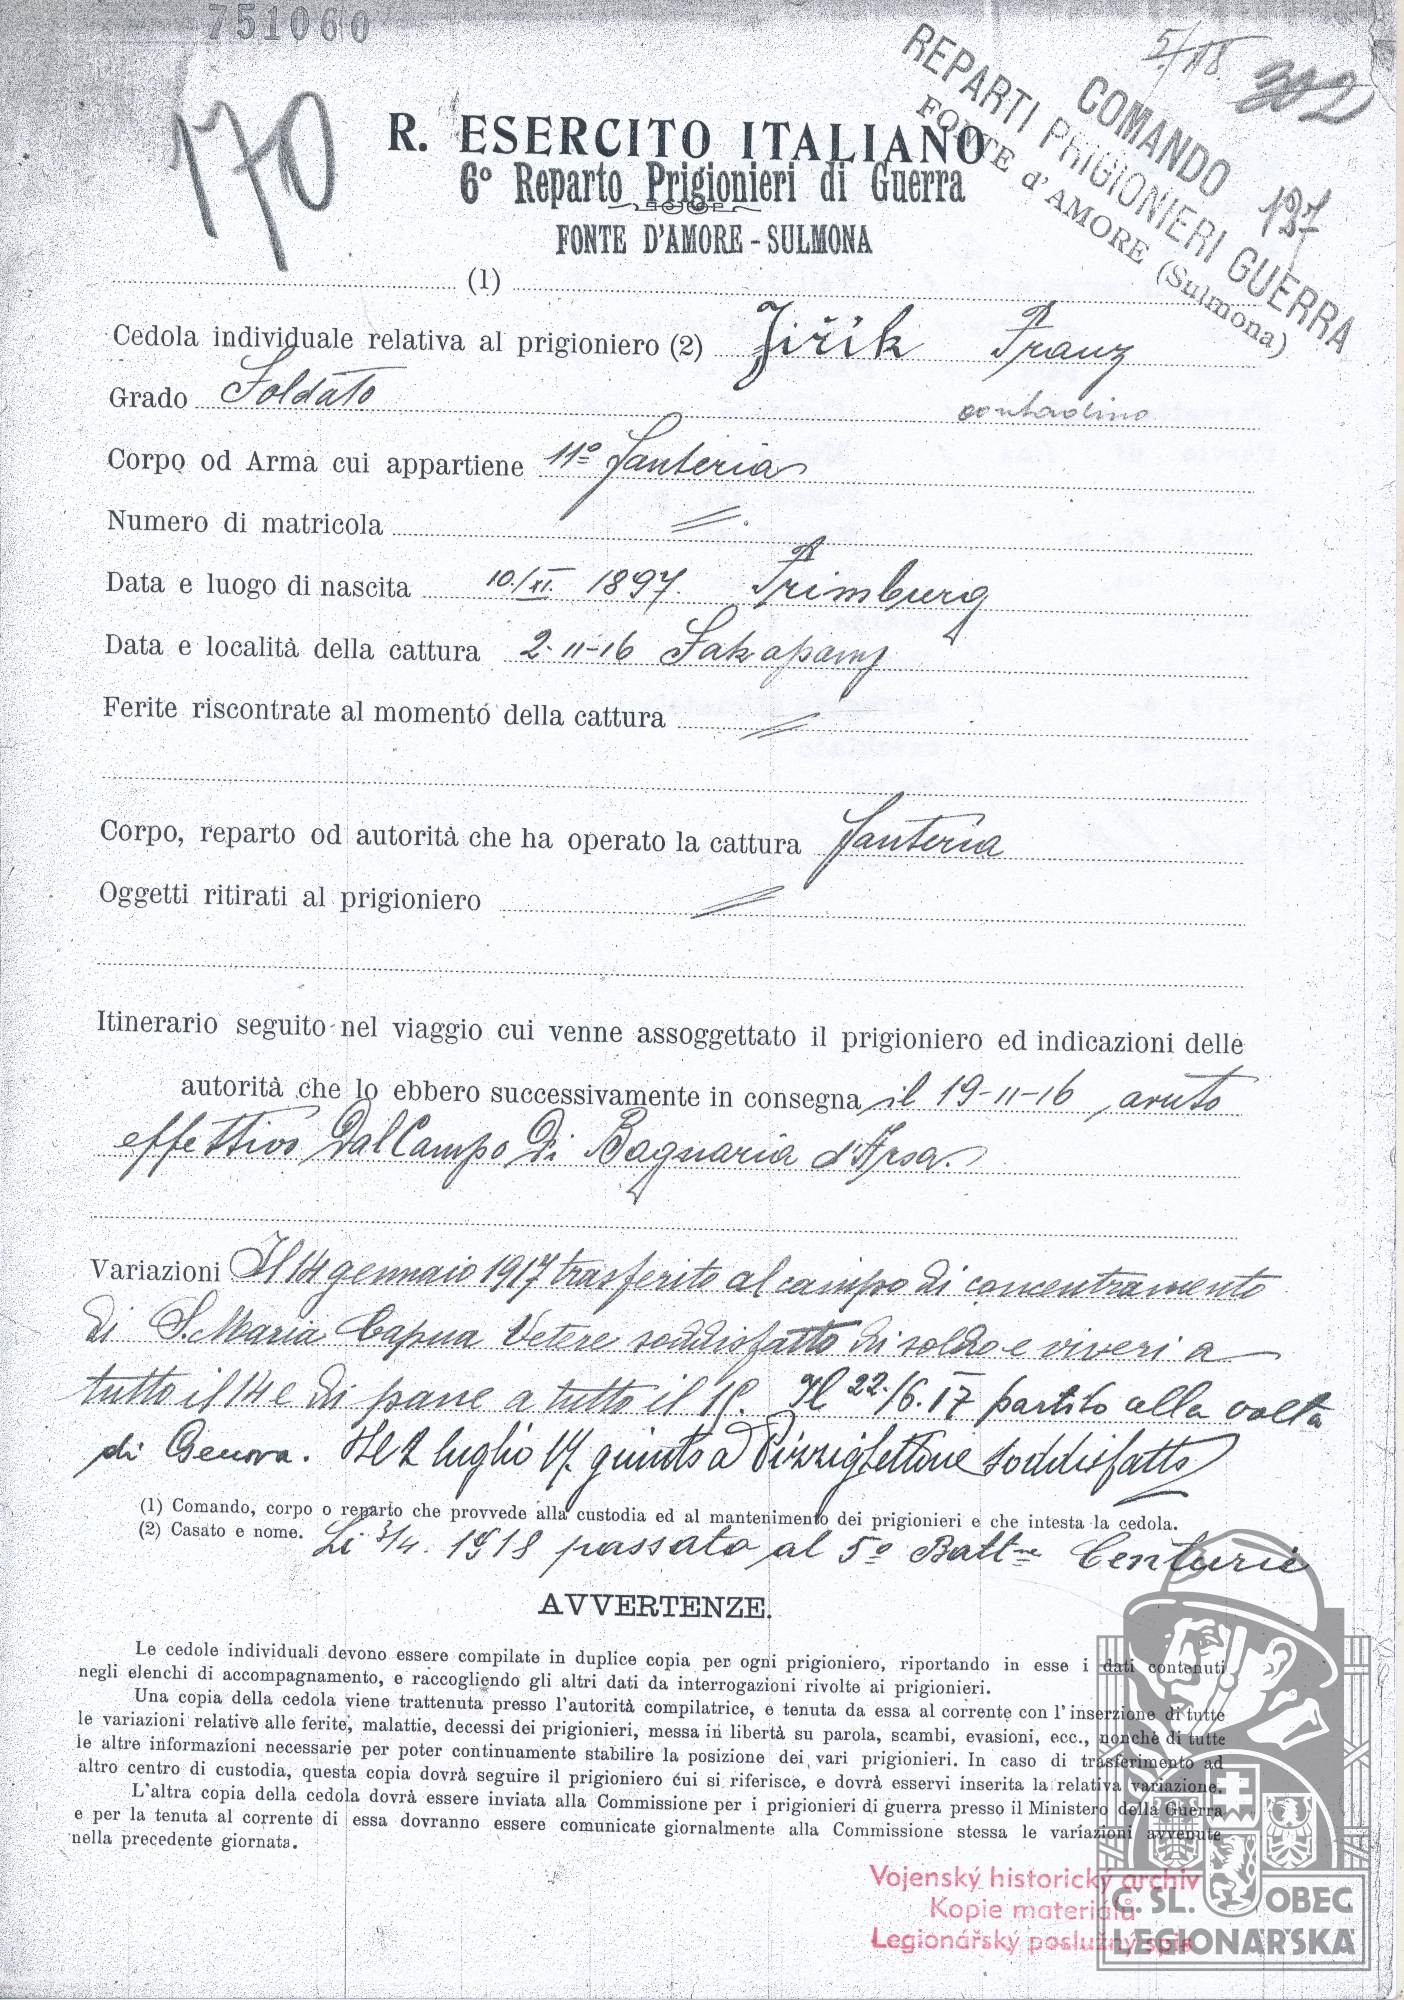 751060
5./18.
302
170
COMANDO
REPARTI PRIGIONIERI GUERRA
FONTE d'AMORE (Sulmona)
R. ESERCITO ITALIANO
6º Reparto Prigionieri di Guerra
FONTE D'AMORE - SULMONA
(1)
Cedola individuale relativa al prigioniero (2) Jiřik Franz
Grado Soldato contadino
Corpo od Arma cui appartiene 11º fanteria
Numero di matricola
Data e luogo di nascita 10./XI. 1897. Frimburg
Data e località della cattura 2-11-16
Ferite riscontrate al momento della cattura
Corpo, reparto od autorità che ha operato la cattura fanteria
Oggetti ritirati al prigioniero
Itinerario seguito nel viaggio cui venne assoggettato il prigioniero ed indicazioni delle
autorità che lo ebbero successivamente in consegna il 19-11-16 avuto
effettivo dal Campo di Bagnaria d'Arsa.
Variazioni Il 14 gennaio 1917 trasferito al campo di concentramento
di S. Maria Capua Vetere soddisfatto di soldo e viveri a
tutto il 14 e di pane a tutto il 15. Il 22./6.17 partito alla volta
di Genova. Il 2 luglio 17. giunto a Pizzighettone soddisfatto
(1) Comando, corpo o reparto che provvede alla custodia ed al mantenimento dei prigionieri e che intesta la cedola.
(2) Casato e nome.
Li 3/4. 1918 passato al 5º Battne Centurie
AVVERTENZE.
Le cedole individuali devono essere compilate in duplice copia per ogni prigioniero, riportando in esse i dati contenuti
negli elenchi di accompagnamento, e raccogliendo gli altri dati da interrogazioni rivolte ai prigionieri.
Una copia della cedola viene trattenuta presso l'autorità compilatrice, e tenuta da essa al corrente con l'inserzione di tutte
le variazioni relative alle ferite, malattie, decessi dei prigionieri, messa in libertà su parola, scambi, evasioni, ecc., nonchè di tutte
le altre informazioni necessarie per poter continuamente stabilire la posizione dei vari prigionieri. In caso di trasferimento ad
altro centro di custodia, questa copia dovrà seguire il prigioniero cui si riferisce, e dovrà esservi inserita la relativa variazione.
L'altra copia della cedola dovrà essere inviata alla Commissione per i prigionieri di guerra presso il Ministero della Guerra
e per la tenuta al corrente di essa dovranno essere comunicate giornalmente alla Commissione stessa le variazioni avvenute
nella precedente giornata.
Vojenský historický archiv
Kopie materiálů
Legionářský poslužný spis
Č. SL. OBEC
LEGIONÁŘSKÁ